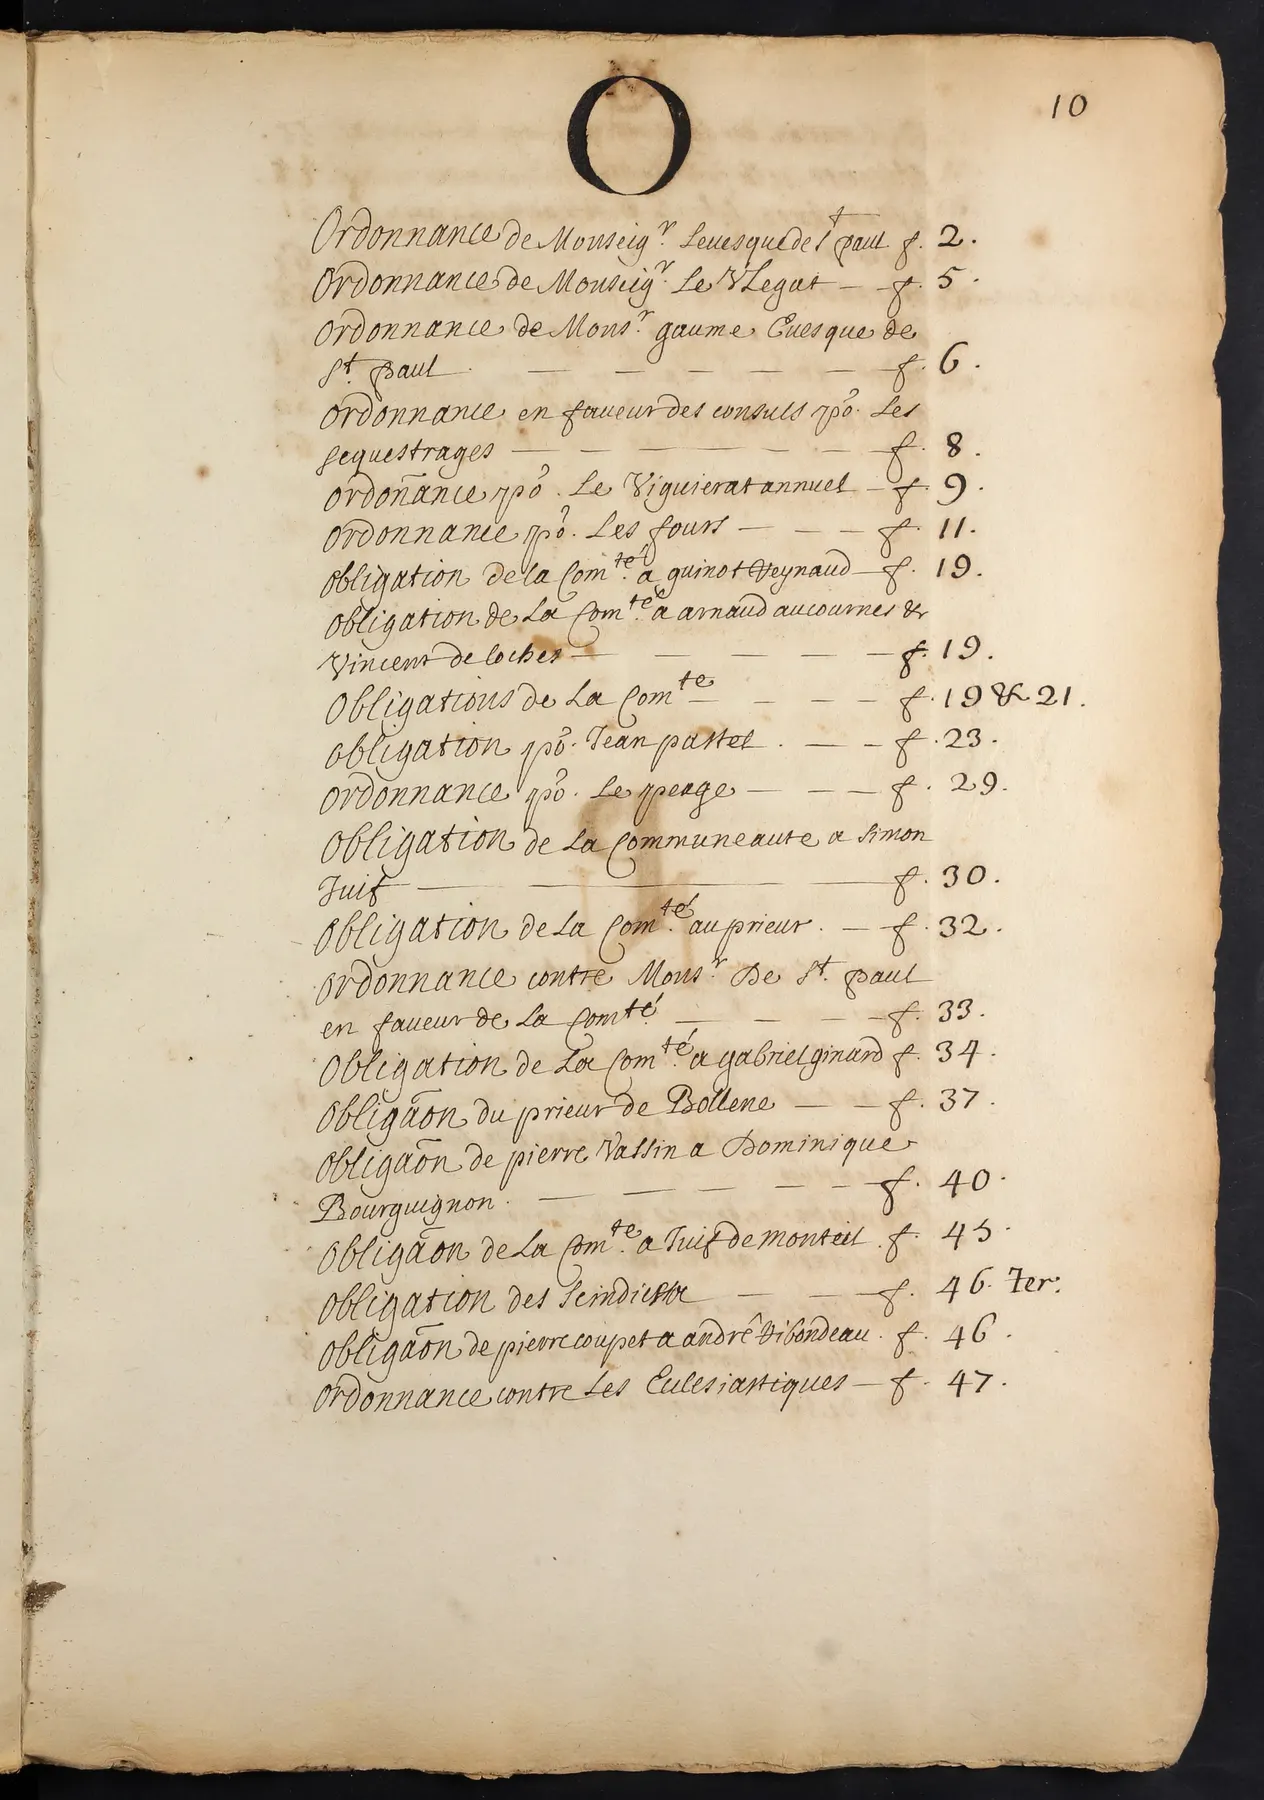 10
O
Ordonnance de Monseigr. Levesque de St paul f. 2.
Ordonnance de Monseigr. Le VLegat — f. 5.
Ordonnance de Monsr. gaume Evesque de
St. paul — — — — — f. 6.
Ordonnance en faveur des consuls po. Les
sequestrages — — — — — f. 8.
Ordoñance po. Le Viguierat annuel — f. 9.
Ordonnance po. Les fours — — — f. 11.
Obligation de la Comté. a guinot Veynaud — f. 19.
Obligation de La Comté. a arnaud aucournes &
Vincent de loches — — — — — f. 19.
Obligations de La Comte — — — — f. 19 & 21.
Obligation po. Jean pastel. — — f. 23.
Ordonnance po. Le peage — — — f. 29.
Obligation de La Communeaute a Simon
Juif — — — f. 30.
Obligation de La Comté. au prieur. — f. 32.
Ordonnance contre Monsr. De St. paul
en faveur de La Comté. — — — — f. 33.
Obligation de La Comté. a gabriel ginard f. 34.
Obligãon du prieur de Bollene — — f. 37.
Obligãon de pierre Vassin a Dominique
Bourguignon. — — — — — f. 40.
Obligãon de La Comte. a Juif de monteil. f. 45.
Obligation des — — f. 46. Ter.
Obligãon de pierre coupet a andré Vibondeau. f. 46.
Ordonnance contre Les Eclesiastiques — f. 47.